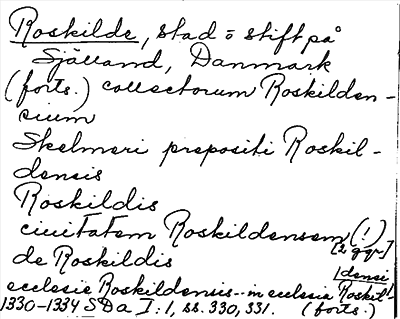 Roskilde, stad o stift på
Själland, Danmark
(forts.) collectorum Roskilden-
sium
Skelmeri prepositi Roskil-
densis
Roskildis
ciuitatem Roskildensem (!)
[2 ggr]
de Roskildis
densi
ecclesie Roskildensis -- in ecclesia Roskil-
1330-1334 SDa I:1, ss. 330, 331. (forts.)